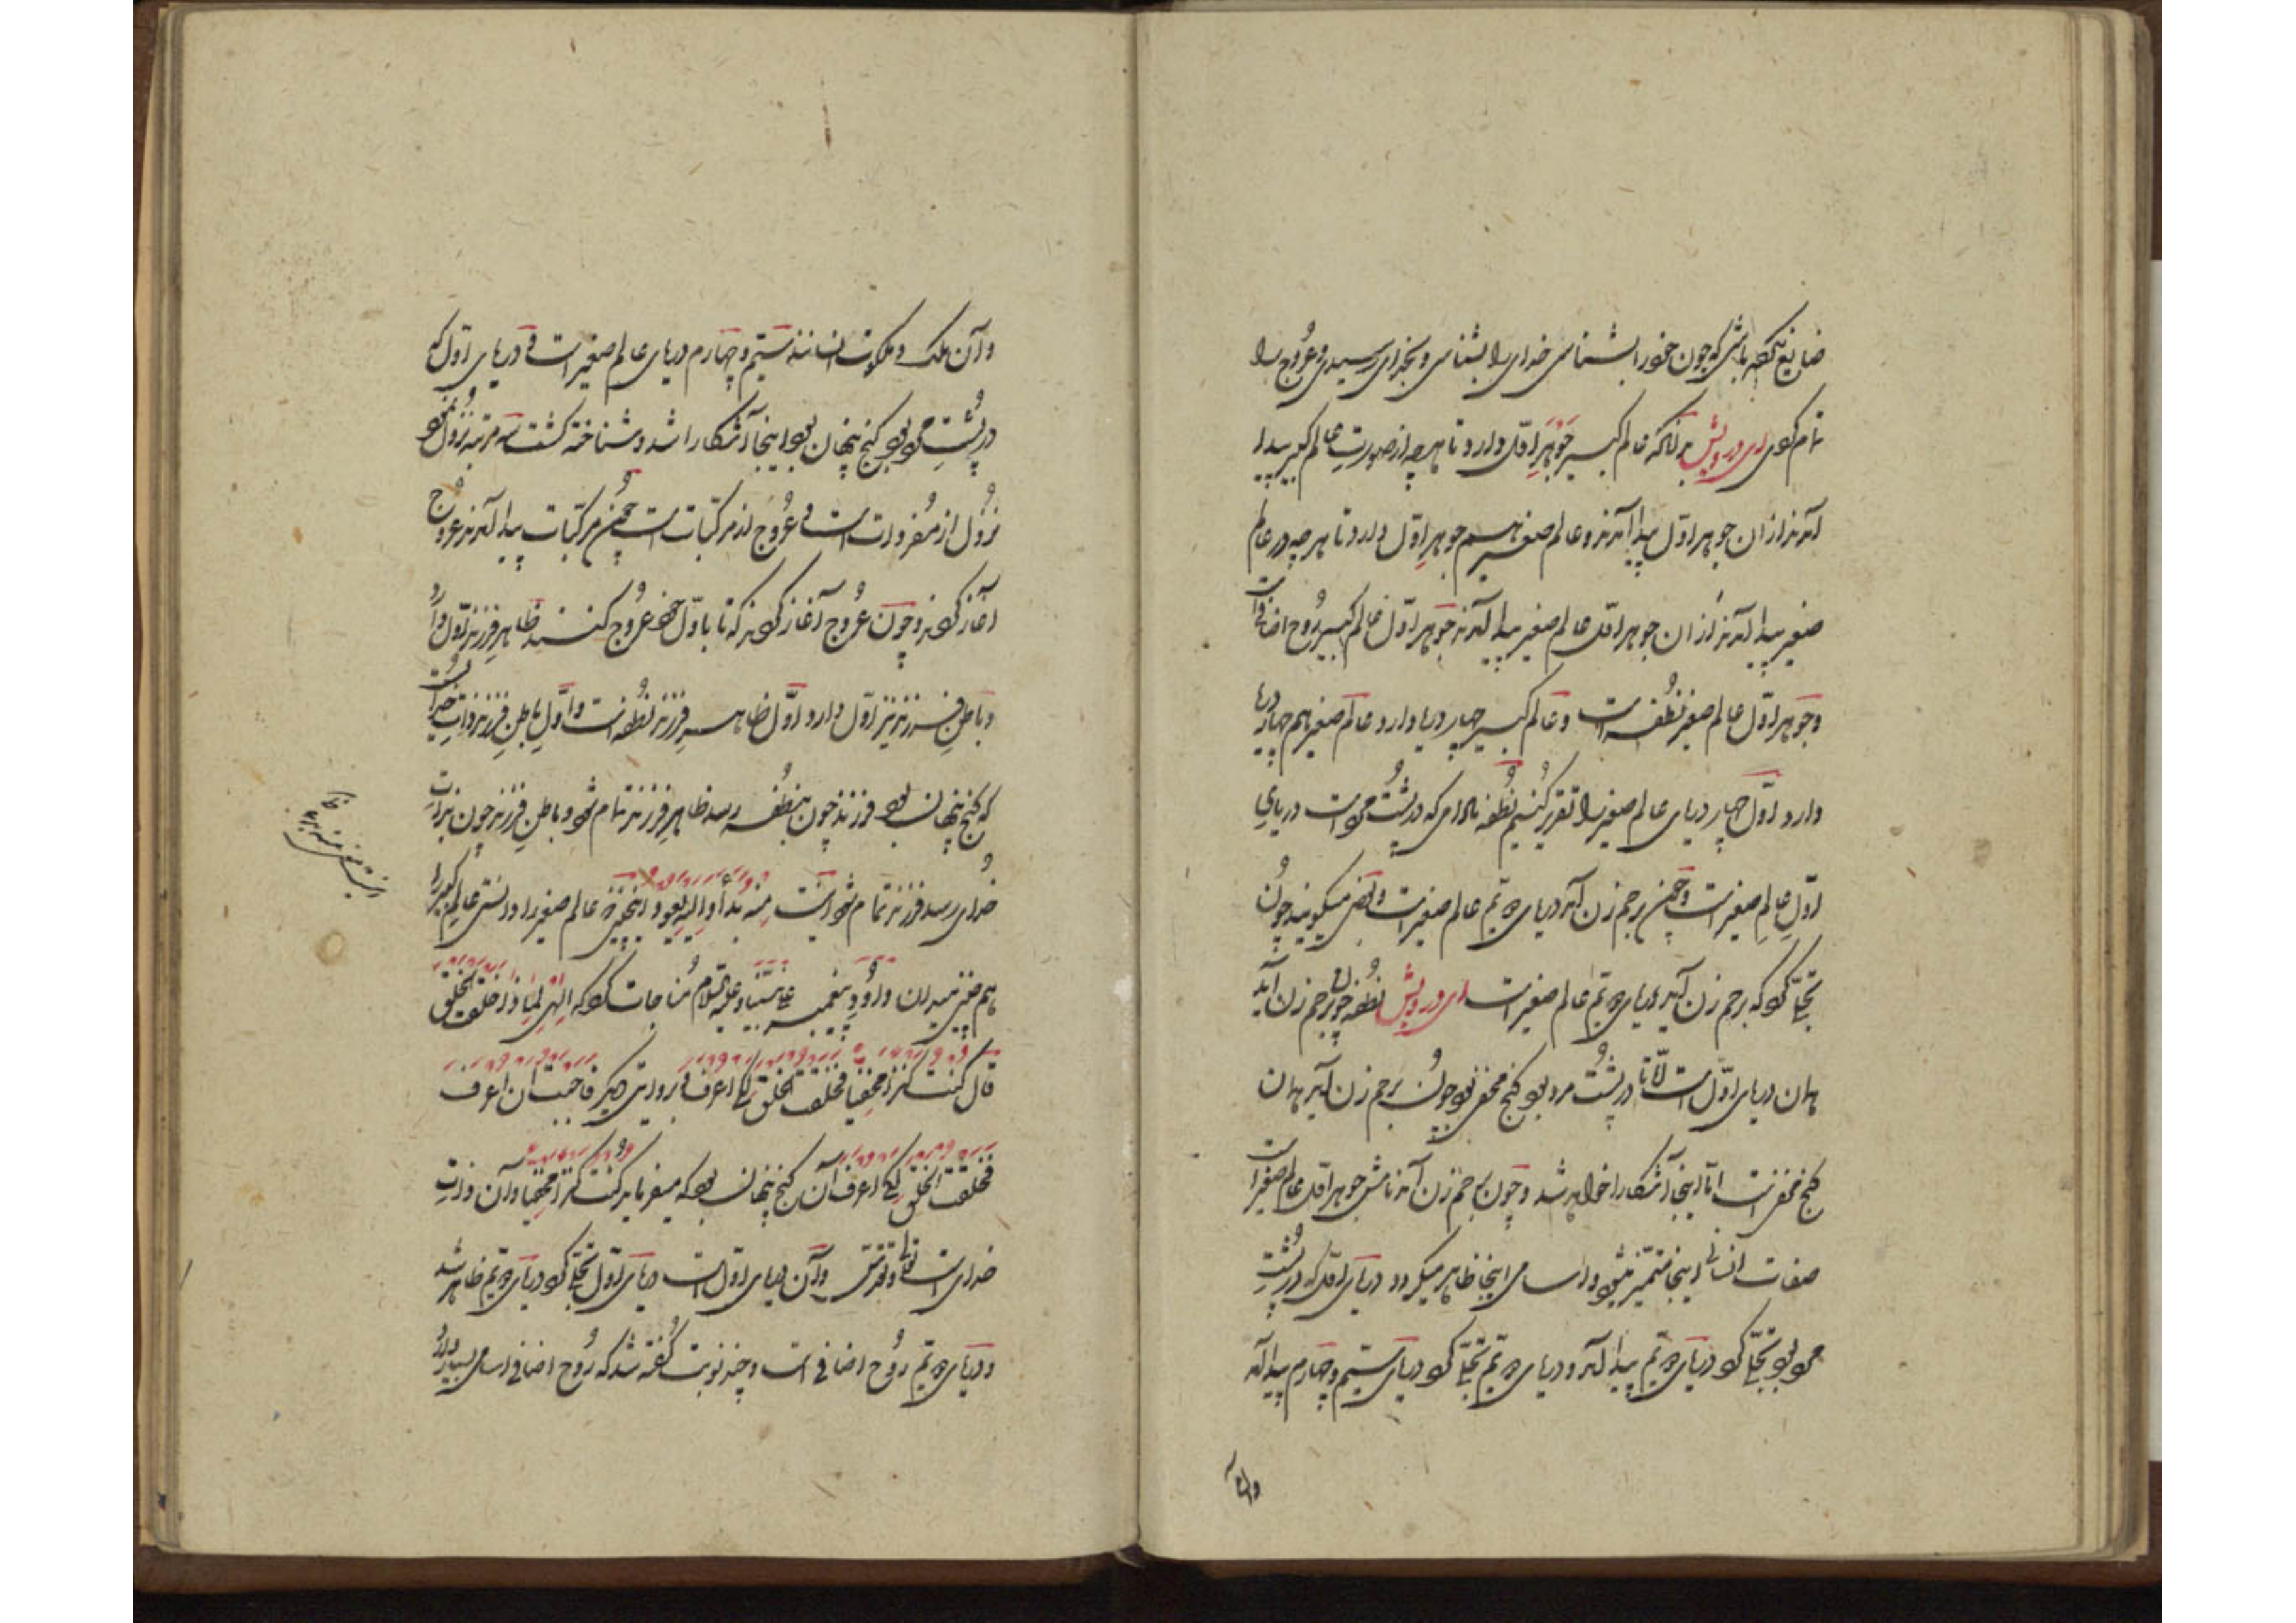 ضایع نکرده باشی که چون خود را بشناسی خدای را بشناسی و بخدای رسیدی و عروج را
تمام کردی ای درویش بدانکه عالم کبیر جوهر اول دارد تا هرچه از صورت عالم کبیر پیدا
آمدند از آن جوهر اول پیدا آمدند و عالم صغیر هم جوهر اول دارد تا هرچه در عالم
صغیر پیدا آمدند از آن جوهر اول عالم صغیر پیدا آمدند جوهر اول عالم کبیر روح اضافی است
و جوهر اول عالم صغیر نطفه است و عالم کبیر چهار دریا دارد و عالم صغیر هم چهار دریا
دارد اول چهار دریای عالم صغیر را تقریر کنیم نطفه تا دام که در پشت مرد است دریای
اول عالم صغیر است و چون برحم زن آمد دریای دویم عالم صغیر است و بعضی میگویند چون
تجلی کرد که برحم زن آید دریای دویم عالم صغیر است ای درویش نطفه چون برحم زن آید
همان دریای اول است الا تا در پشت مرد بود کنج مخفی بود چون برحم زن آمد همان
کنج مخفی است اما اینجا آشکارا خواهد شد و چون برحم زن آمد نامش جوهر اول عالم صغیر است
صفات انسانی اینجا متمیز میشود و اسامی اینجا ظاهر میگردد دریای اول که در پشت
مرد بود تجلی کرد دریای دویم پیدا آمد و دریای دویم تجلی کرد دریای سیم و چهارم پیدا آمد
و آن
و آن ملک و ملکوت انسانند سیم و چهارم دریای عالم صغیر است و دریای اول که
در پشت مرد بود کنج پنهان بود اینجا آشکارا شد و شناخته کشت سه مرتبه نزول نمود
نزول از مفردات است و عروج از مرکبات است چون مرکبات پیدا آمدند عروج
آغاز کردند و چون عروج آغاز کردند که تا باول خود عروج کنند ظاهر فرزند اول دارد
و باطن فرزند نیز اول دارد اول ظاهر فرزند نطفه است و اول باطن فرزند ذات خداست
که کنج پنهان بود فرزند چون بنطفه رسد ظاهر فرزند تمام شود و باطن فرزند چون بذات
خدای رسد فرزند تمام شود اینست منه بدأ و الیه یعود اینچنین عالم صغیر را دانستی عالم کبیر را
هم چنین میدان داود پیغمبر علی نبینا و علیه السلام مناجات کرد که الهی لماذا خلقت الخلق
قال کنت کنزا مخفیا فخلقت الخلق لکی اعرف و بروایتی دیگر فاحببت ان اعرف
فخلقت الخلق لکی اعرف آن کنج پنهان بود که میفرماید کنت کنزا مخفیا و آن ذات
خدای است تعالی و تقدس و آن دریای اول است دریای اول تجلی کرد دریای دویم ظاهر شد
و دریای دویم روح اضافی است و چند نوبت گفته شد که روح اضافی اسامی بسیار دارد